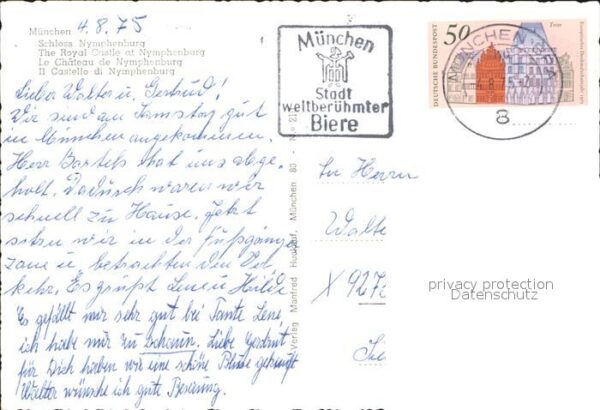 München 4.8.75
Schloss Nymphenburg
The Royal Castle at Nymphenburg
Le Château de Nymphenburg
Il Castello di Nymphenburg
Lieber Walter u. Gertrud!
Wir sind am Samstag gut
in München angekommen.
Herr Bartels hat uns abge-
holt. Dadurch waren wir
schnell zu Hause. Jetzt
sitzen wir in der Fußgänger
zone u. betrachten den Ver-
kehr. Es grüßt Lene u. Hilde
Es gefällt mir sehr gut bei Tante Lene
ich habe mir zu schaun. Liebe
für Dich haben wir eine schöne Bluse gekauft
Walter wünsche ich gute Besserung.
München
Stadt
weltberühmter
Biere
DEUTSCHE BUNDESPOST
50
Trier
MÜNCHEN
8
Verlag Manfred München 80
An Herrn
Walte
X 927
privacy protection
Datenschutz